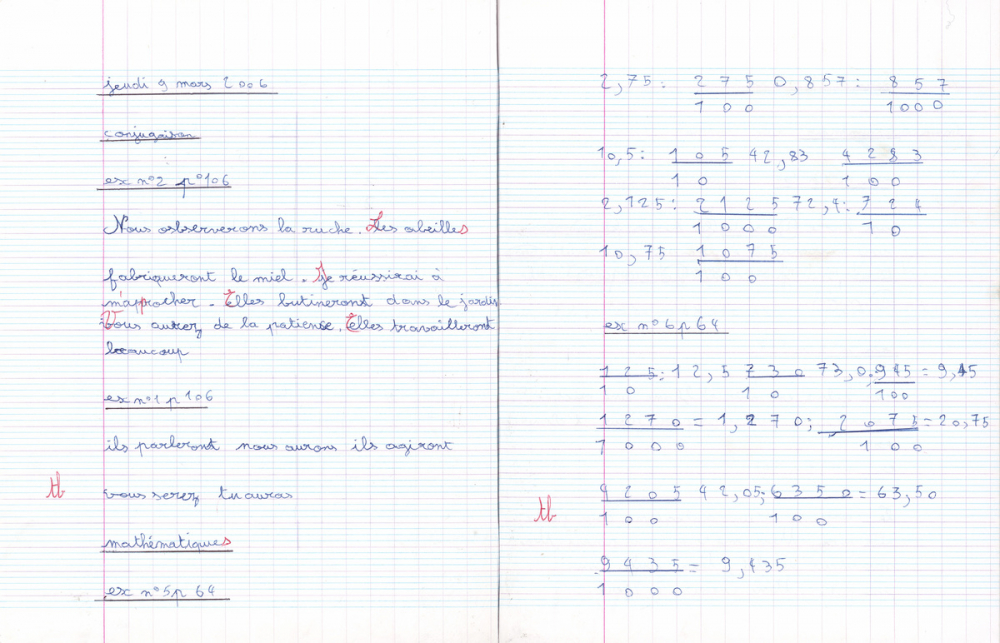 jeudi 9 mars 2006
conjugaison
ex n°2 p°106
Nous observerons la ruche. Les abeilles
fabriqueront le miel. Je réussirai à
m'approcher. Elles butineront dans le jardin
Vous aurez de la patiense. Elles travailleront
beaucoup
ex n°1 p 106
ils parleront nous aurons ils agiront
tb vous serez tu auras
mathématiques
ex n°5 p 64
2,75: 275/100 0,857: 857/1000
10,5: 105/10 42,83 4283/100
2,125: 2125/1000 72,4: 724/10
10,75 1075/100
ex n°6 p 64
125/10: 12,5 730/10 73,0; 945/100 = 9,45
1270/1000 = 1,270; 2075/100 = 20,75
4205/100 42,05; 6350/100 = 63,50
tb
9435/1000 = 9,435